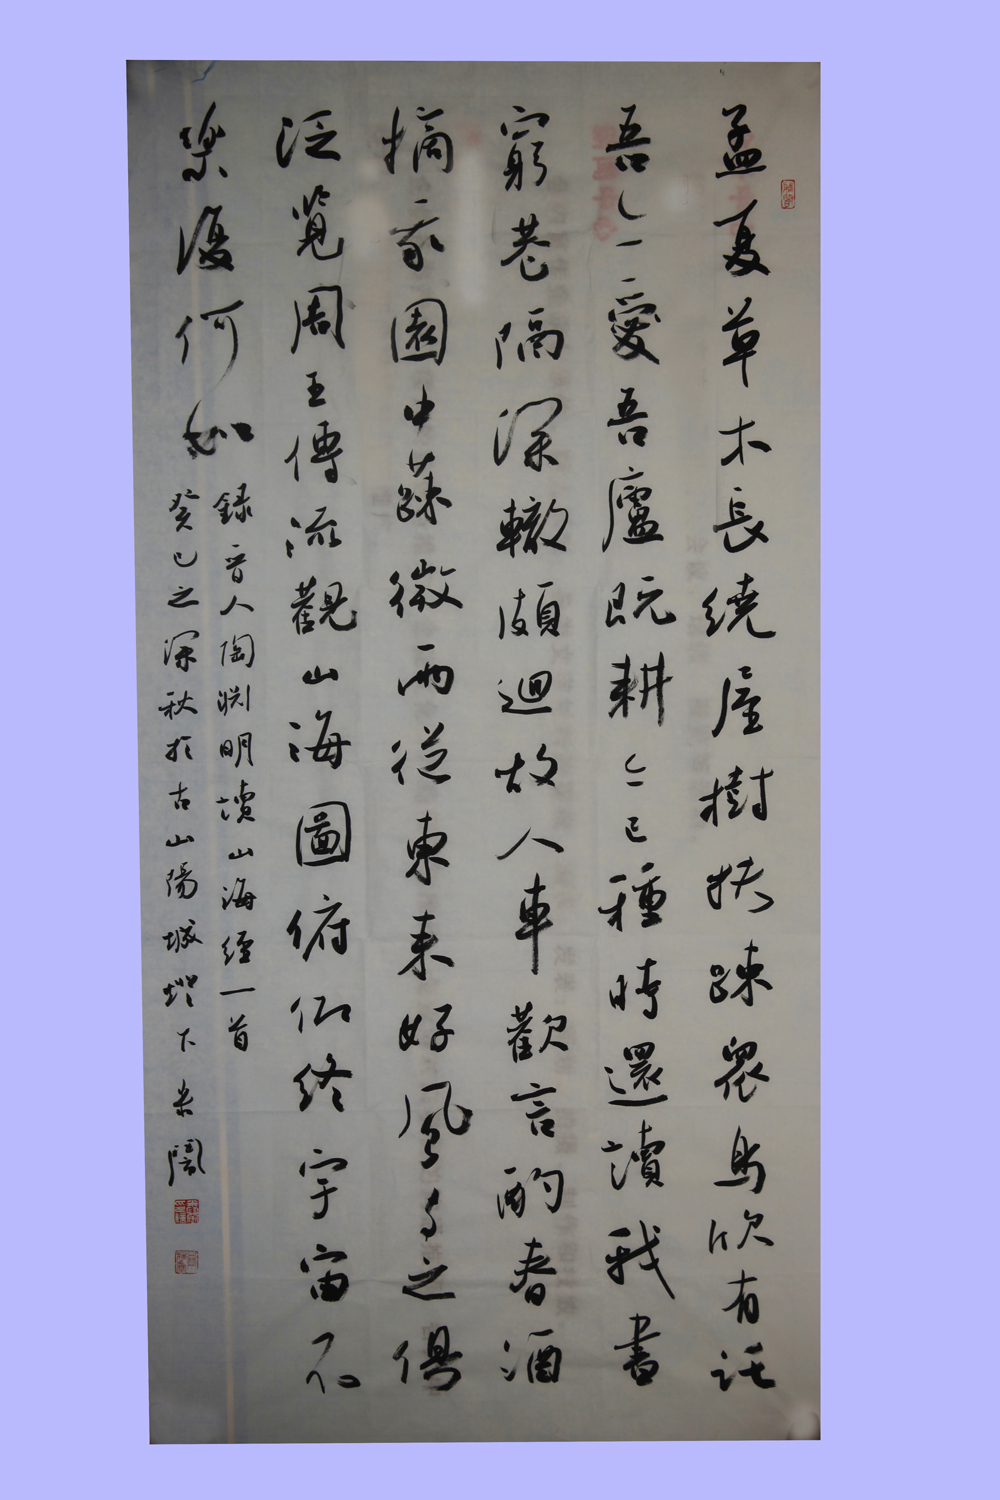 孟夏草木長繞屋樹扶踈衆鳥欣有託
吾亦愛吾廬既耕亦已種時還讀我書
窮巷隔深轍頗迴故人車歡言酌春酒
摘我園中蔬微雨從東来好風與之俱
泛覽周王傳流觀山海圖俯仰終宇宙不
樂復何如
録晉人陶渊明讀山海經一首
癸巳之深秋於古山陽城燈下米